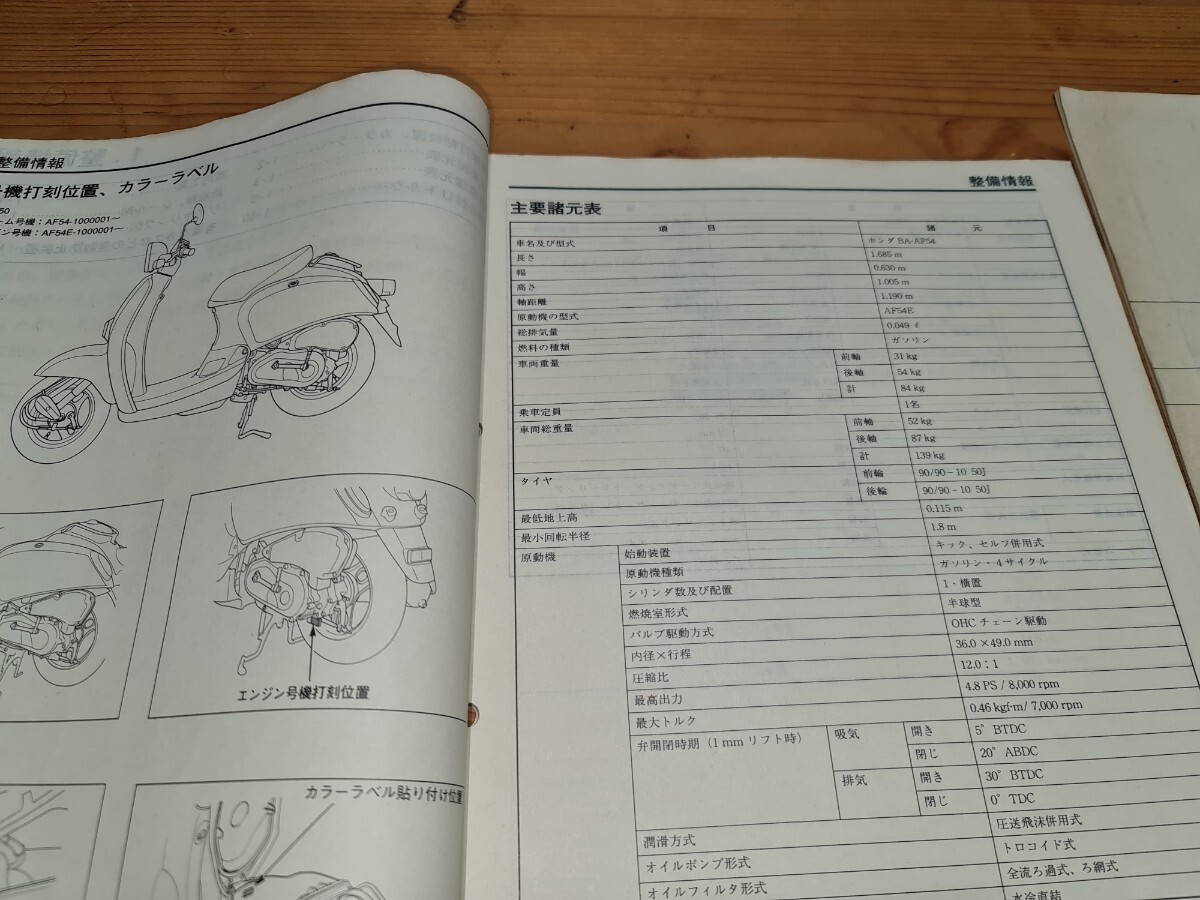 整備情報
機打刻位置、カラーラベル
50
ーム号機：AF54-1000001～
ン号機：AF54E-1000001～
エンジン号機打刻位置
カラーラベル貼り付け位置
整備情報
主要諸元表
項 目 諸 元
車名及び型式 ホンダ BA-AF54
長さ 1.685 m
幅 0.630 m
高さ 1.005 m
軸距離 1.190 m
原動機の型式 AF54E
総排気量 0.049 ℓ
燃料の種類 ガソリン
車両重量 前軸 31 kg
後軸 54 kg
計 84 kg
乗車定員 1名
車両総重量 前軸 52 kg
後軸 87 kg
計 139 kg
タイヤ 前輪 90/90－10 50J
後輪 90/90－10 50J
最低地上高 0.115 m
最小回転半径 1.8 m
原動機 始動装置 キック、セルフ併用式
原動機種類 ガソリン・4サイクル
シリンダ数及び配置 1・横置
燃焼室形式 半球型
バルブ駆動方式 OHC チェーン駆動
内径×行程 36.0 ×49.0 mm
圧縮比 12.0：1
最高出力 4.8 PS / 8,000 rpm
最大トルク 0.46 kgf·m/ 7,000 rpm
弁開閉時期（1 mm リフト時） 吸気 開き 5° BTDC
閉じ 20° ABDC
排気 開き 30° BTDC
閉じ 0° TDC
潤滑方式 圧送飛沫併用式
オイルポンプ形式 トロコイド式
オイルフィルタ形式 全流ろ過式、ろ網式
水冷直結